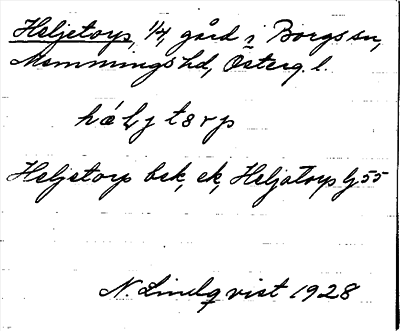 Heljetorp, 1/4, gård i Borgs sn,
Memmings hd, Österg. l.
hæljtorp
Heljetorp bsk, ek, Heljatorp G 55
N. Lindqvist 1928